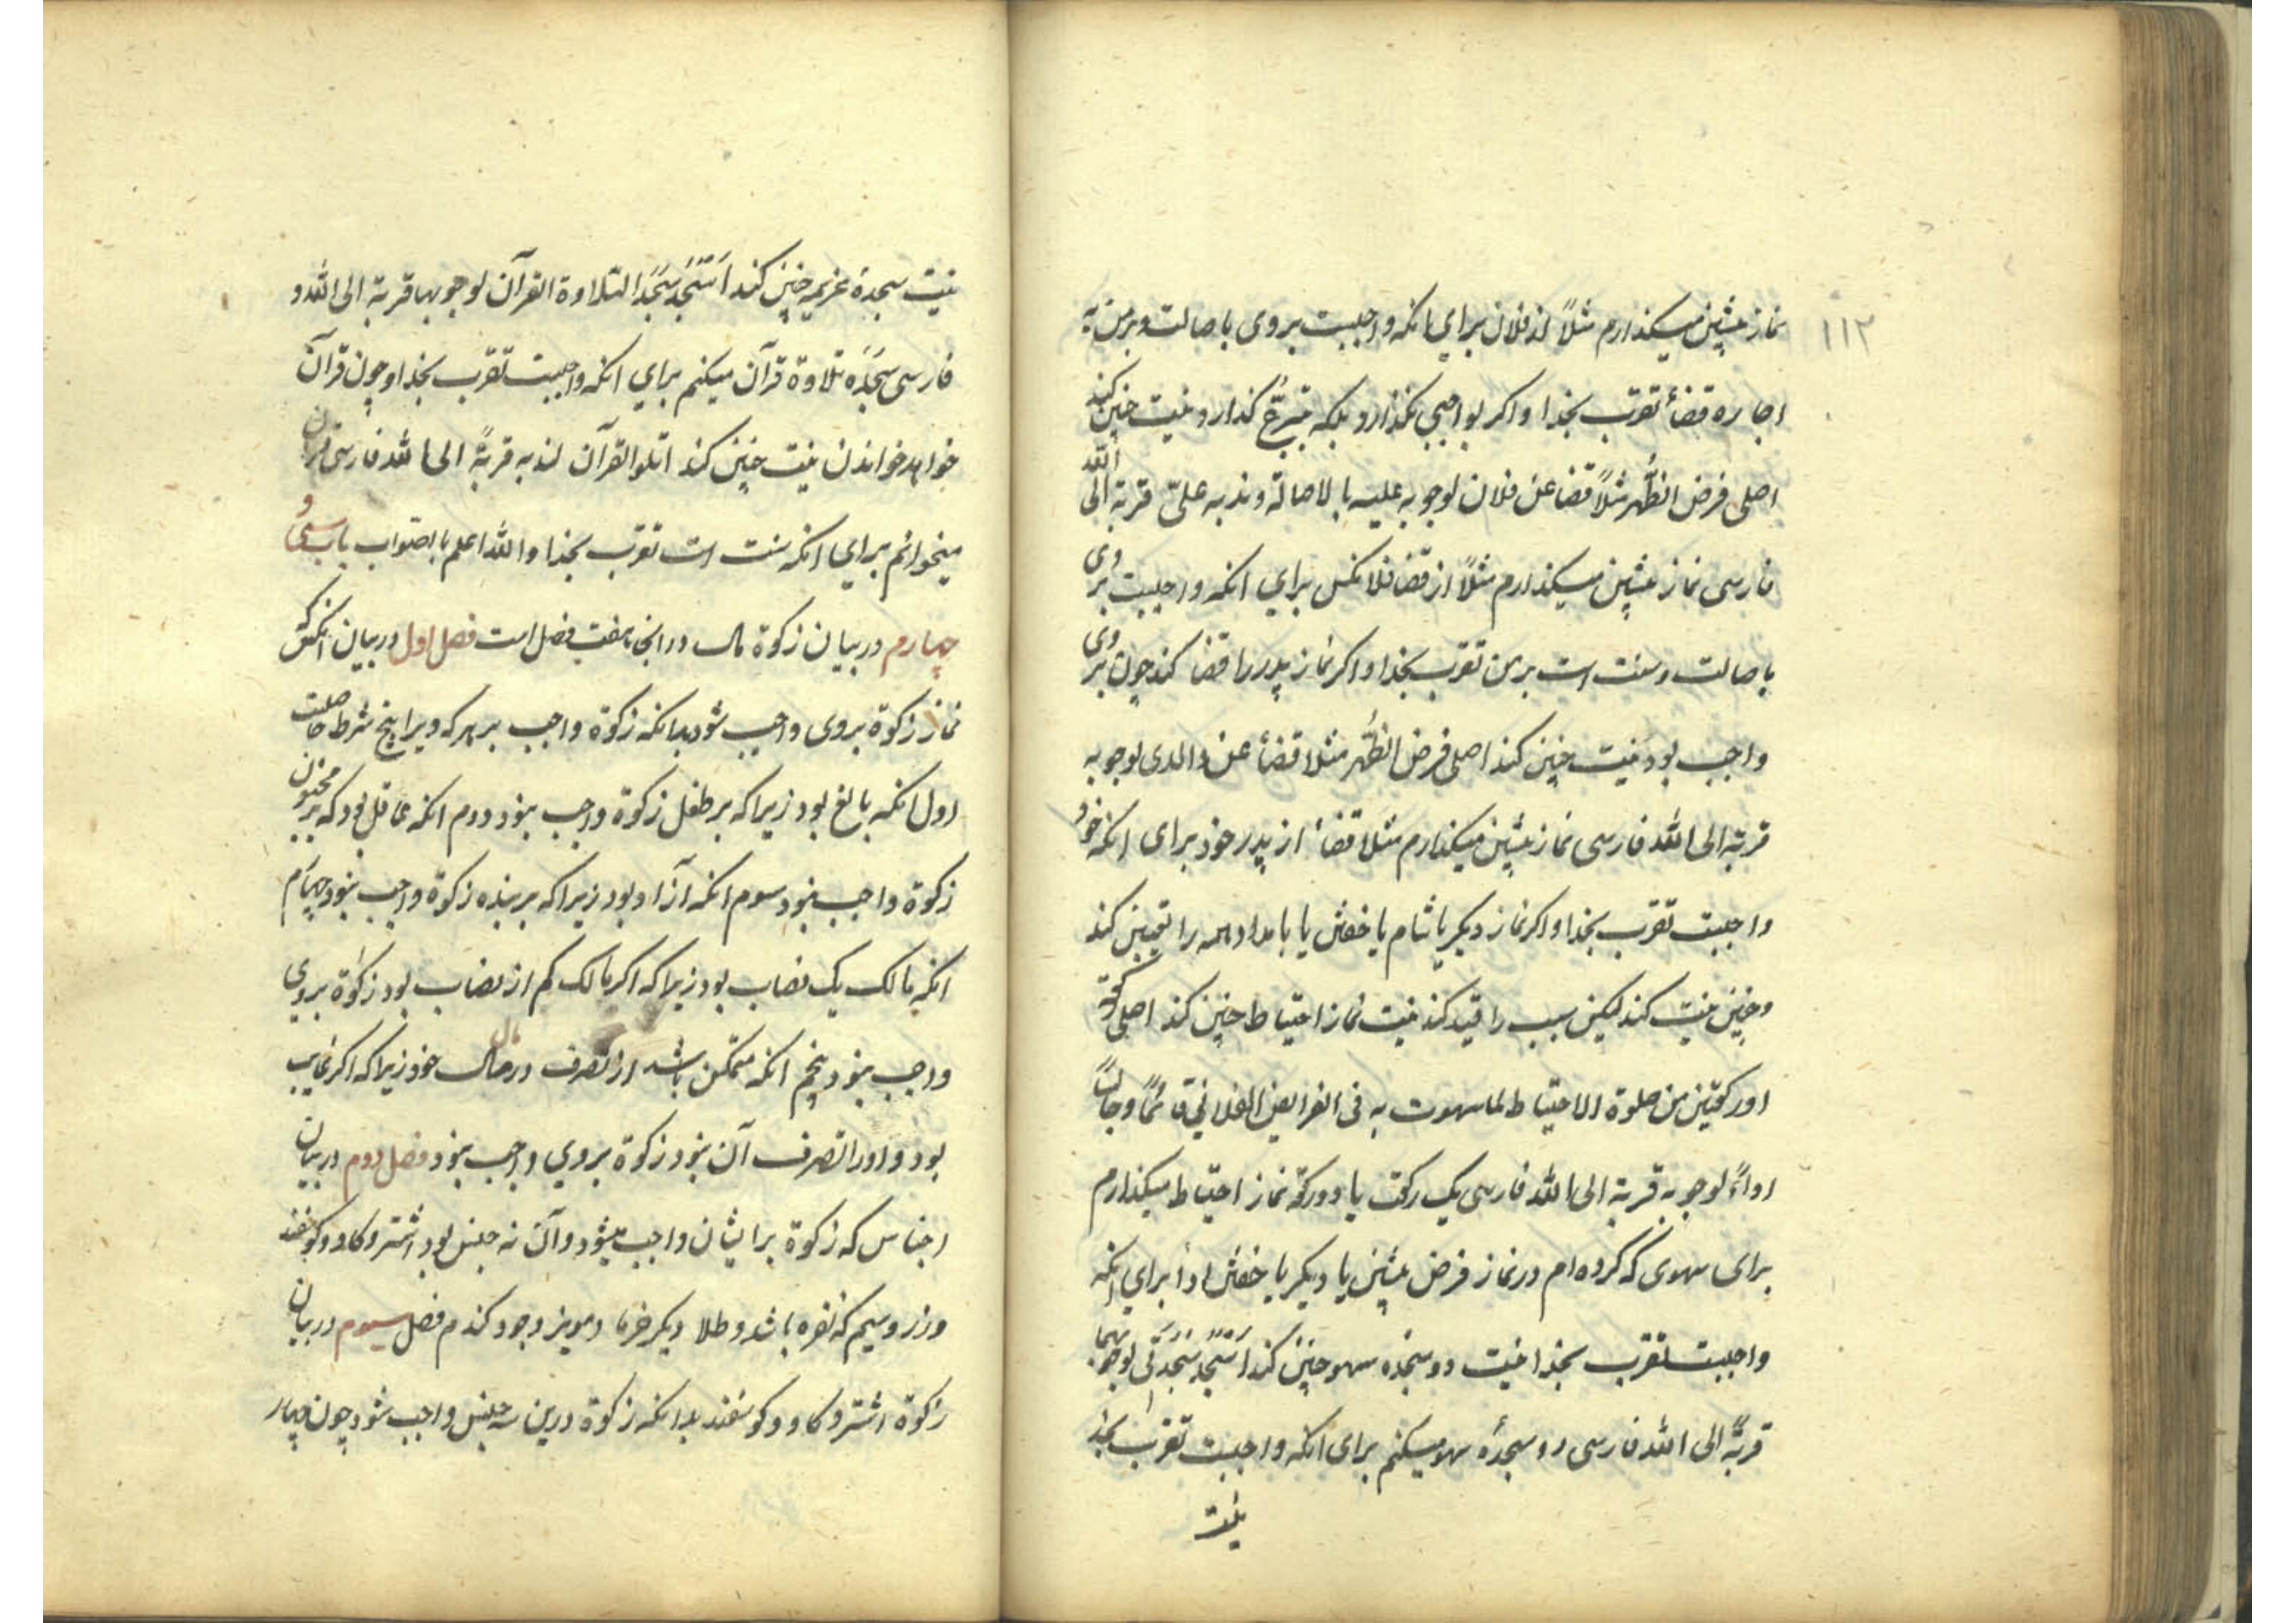 ۱۱۲
نماز پیشین میکذارم مثلاً از فلان برای انکه واجبست بروی باصالت و برمن به
اجاره قضأ تقرب بخدا و اکر بواجبی نکذارد بلکه تبرّع کذارد نیت چنین کند
اصلی فرض الظُّهر مثلاً قضا عن فلان لوجوبه علیه بالاصالة و ندبه علیّ قربة الی الله
فارسی نماز پیشین میکذارم مثلاً از قضا فلانکس برای انکه واجبست بر وی
باصالت و سنت است برمن تقرب بخدا و اکر نماز پدر را قضا کند چون بر وی
واجب بود نیت چنین کند اصلی فرض الظُّهر مثلا قضأ عن والدی لوجوبه
قربة الی الله فارسی نماز پیشین میکذارم مثلا قضأ از پدر خود برای انکه
واجبست تقرب بخدا و اکر نماز دیکر یا شام یا خفتن یا بامداد همه را تعیین کند
و چنین نیت کند لیکن سبب را قید کند نیت نماز احتیاط چنین کند اصلی رکعة
او رکعتین من صلوة الاحتیاط لما سهوت به فی الفرایض الفلانی قائمًا و جالسًا
اداءً لوجوبه قربة الی الله فارسی یک رکعت یا دو رکعة نماز احتیاط میکذارم
برای سهوی که کرده ام در نماز فرض پیشین یا دیکر یا خفتن ادا برای انکه
واجبست تقرب بخدا نیت دو سجده سهو چنین کند اَسْجُد سَجْدَتی لوجوبهما
قربةً الی الله فارسی دو سجدۀ سهو میکنم برای انکه واجبست تقرب بخدا
نیت
نیت سجدۀ عزیمه چنین کند اَسْجُد سَجْدَ التلاوة القرآن لوجوبها قربة الی الله و
فارسی سَجْدَه تلاوة قرآن میکنم برای انکه واجبست تقرب بخدا و چون قرآن
خواهد خواندن نیت چنین کند اتلو القرآن لندبه قربةً الی الله فارسی قرآن
میخوانم برای انکه سنت است تقرب بخدا والله اعلم بالصواب باب سی و
چهارم در بیان زکوة مال و در انجا هفت فصل است فصل اول در بیان انکس
نماز زکوة بروی واجب شود بدانکه زکوة واجب بر هر که ویرا پنج شرط حاصلست
اول انکه بالغ بود زیرا که بر طفل زکوة واجب نبود دوم انکه عاقل بود که بر مجنون
زکوة واجب نبود سوم انکه آزاد بود زیرا که بر بنده زکوة واجب نبود چهارم
انکه مالک یک نصاب بود زیرا که اکر مالک کم از نصاب بود زکوة بروی
واجب نبود پنجم انکه متمکن باشد از تصرف در مال خود زیرا که اکر غایب
بود و او را تصرف آن نبود زکوة بروی واجب نبود فصل دوم در بیان
اجناس که زکوة بر ایشان واجب میشود و آن نه جنس بود اشتر و کاو و کوسفند
و زر و سیم که نقره باشد و طلا دیکر خرما و مویز و جو و کندم فصل سیوم در بیان
زکوة اشتر و کاو و کوسفند بدانکه زکوة درین سه جنس واجب شود چون چهار